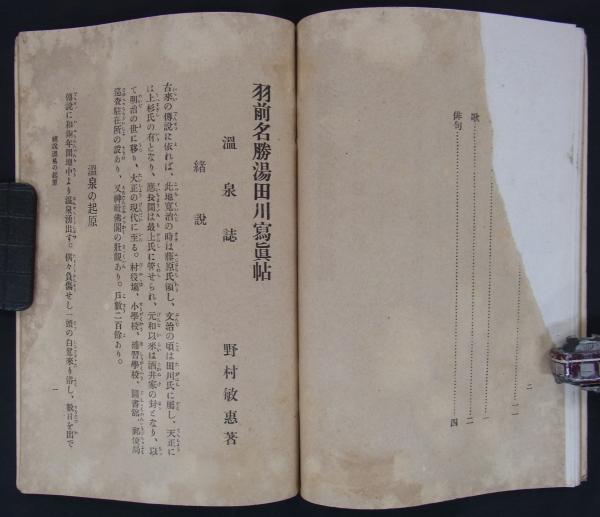 歌……………………二
俳句……………………四
二
羽前名勝湯田川寫眞帖
溫泉誌　野村敏惠著
緒說
古來の傳說に依れば、此地寬治の時は藤原氏領し、文治の頃は田川氏に屬し、天正に
は上杉氏の有となり、慶長間は最上氏に管せられ、元和以來は酒井家の封となり、以
て明治の世に移り、大正の現代に至る。村役場、小學校、補習學校、圖書館、郵便局
巡査駐在所の設あり、又神社佛閣の壯觀あり。戶數二百餘あり。
溫泉の起原
傳說に和銅年間地中より溫泉湧出す。偶々負傷せし一頭の白鷺來り浴し、數日を出で
緒說溫泉の起原
一